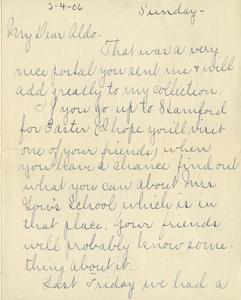 3-4-06 Sunday-
My Dear Aldo.
That was a very
nice postal you sent me & will
add greatly to my collection.
If you go up to Stamford
for Easter (I hope you'll visit
one of your friends) when
you have a chance find out
what you can about Mrs.
School which is in
that place. Your friends
will probably know some-
thing about it.
Last Friday we had a